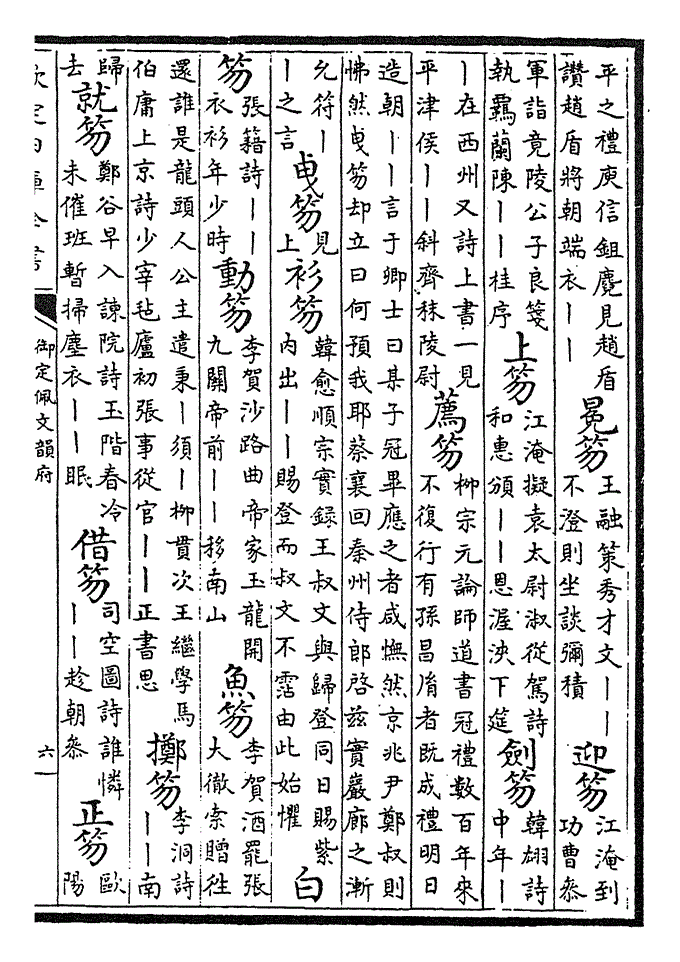 平之禮庾信鉏麑見趙盾
讚趙盾將朝端衣丨丨
冕笏
王融策秀才文丨丨
不澄則坐談彌積
迎笏
江淹到
功曹叅
軍詣竟陵公子良箋
執羈蘭陳丨丨桂序
上笏
江淹擬袁太尉淑從駕詩
和惠頒丨丨恩渥浹下筵
劍笏
韓翃詩
中年丨
丨在西州又詩上書一見
平津侯丨丨斜齊秣陵尉
薦笏
柳宗元論師道書冠禮數百年來
不復行有孫昌胤者既成禮明日
造朝丨丨言于卿士曰某子冠畢應之者咸憮然京兆尹鄭叔則
怫然曵笏却立曰何預我耶蔡襄回秦州侍郎啓兹實巖廊之漸
允符丨
丨之言
曵笏
見
上
衫笏
韓愈順宗實録王叔文與歸登同日賜紫
内出丨丨丨賜登而叔文不霑由此始懼
白
笏
張籍詩丨丨
衣衫年少時
動笏
李賀沙路曲帝家玉龍開
九關帝前丨丨移南山
魚笏
李賀酒罷張
大徹索贈徃
還誰是龍頭人公主遣秉丨須丨柳貫次王繼學馬
伯庸上京詩少宰氊廬初張事從官丨丨正書思
擲笏
李洞詩
丨丨南
歸
去
就笏
鄭谷早入諫院詩玉階春冷
未催班暫掃塵衣丨丨眠
借笏
司空圖詩誰憐
丨丨趁朝叅
正笏
歐
陽
欽定四庫全書
御定佩文韻府
六一